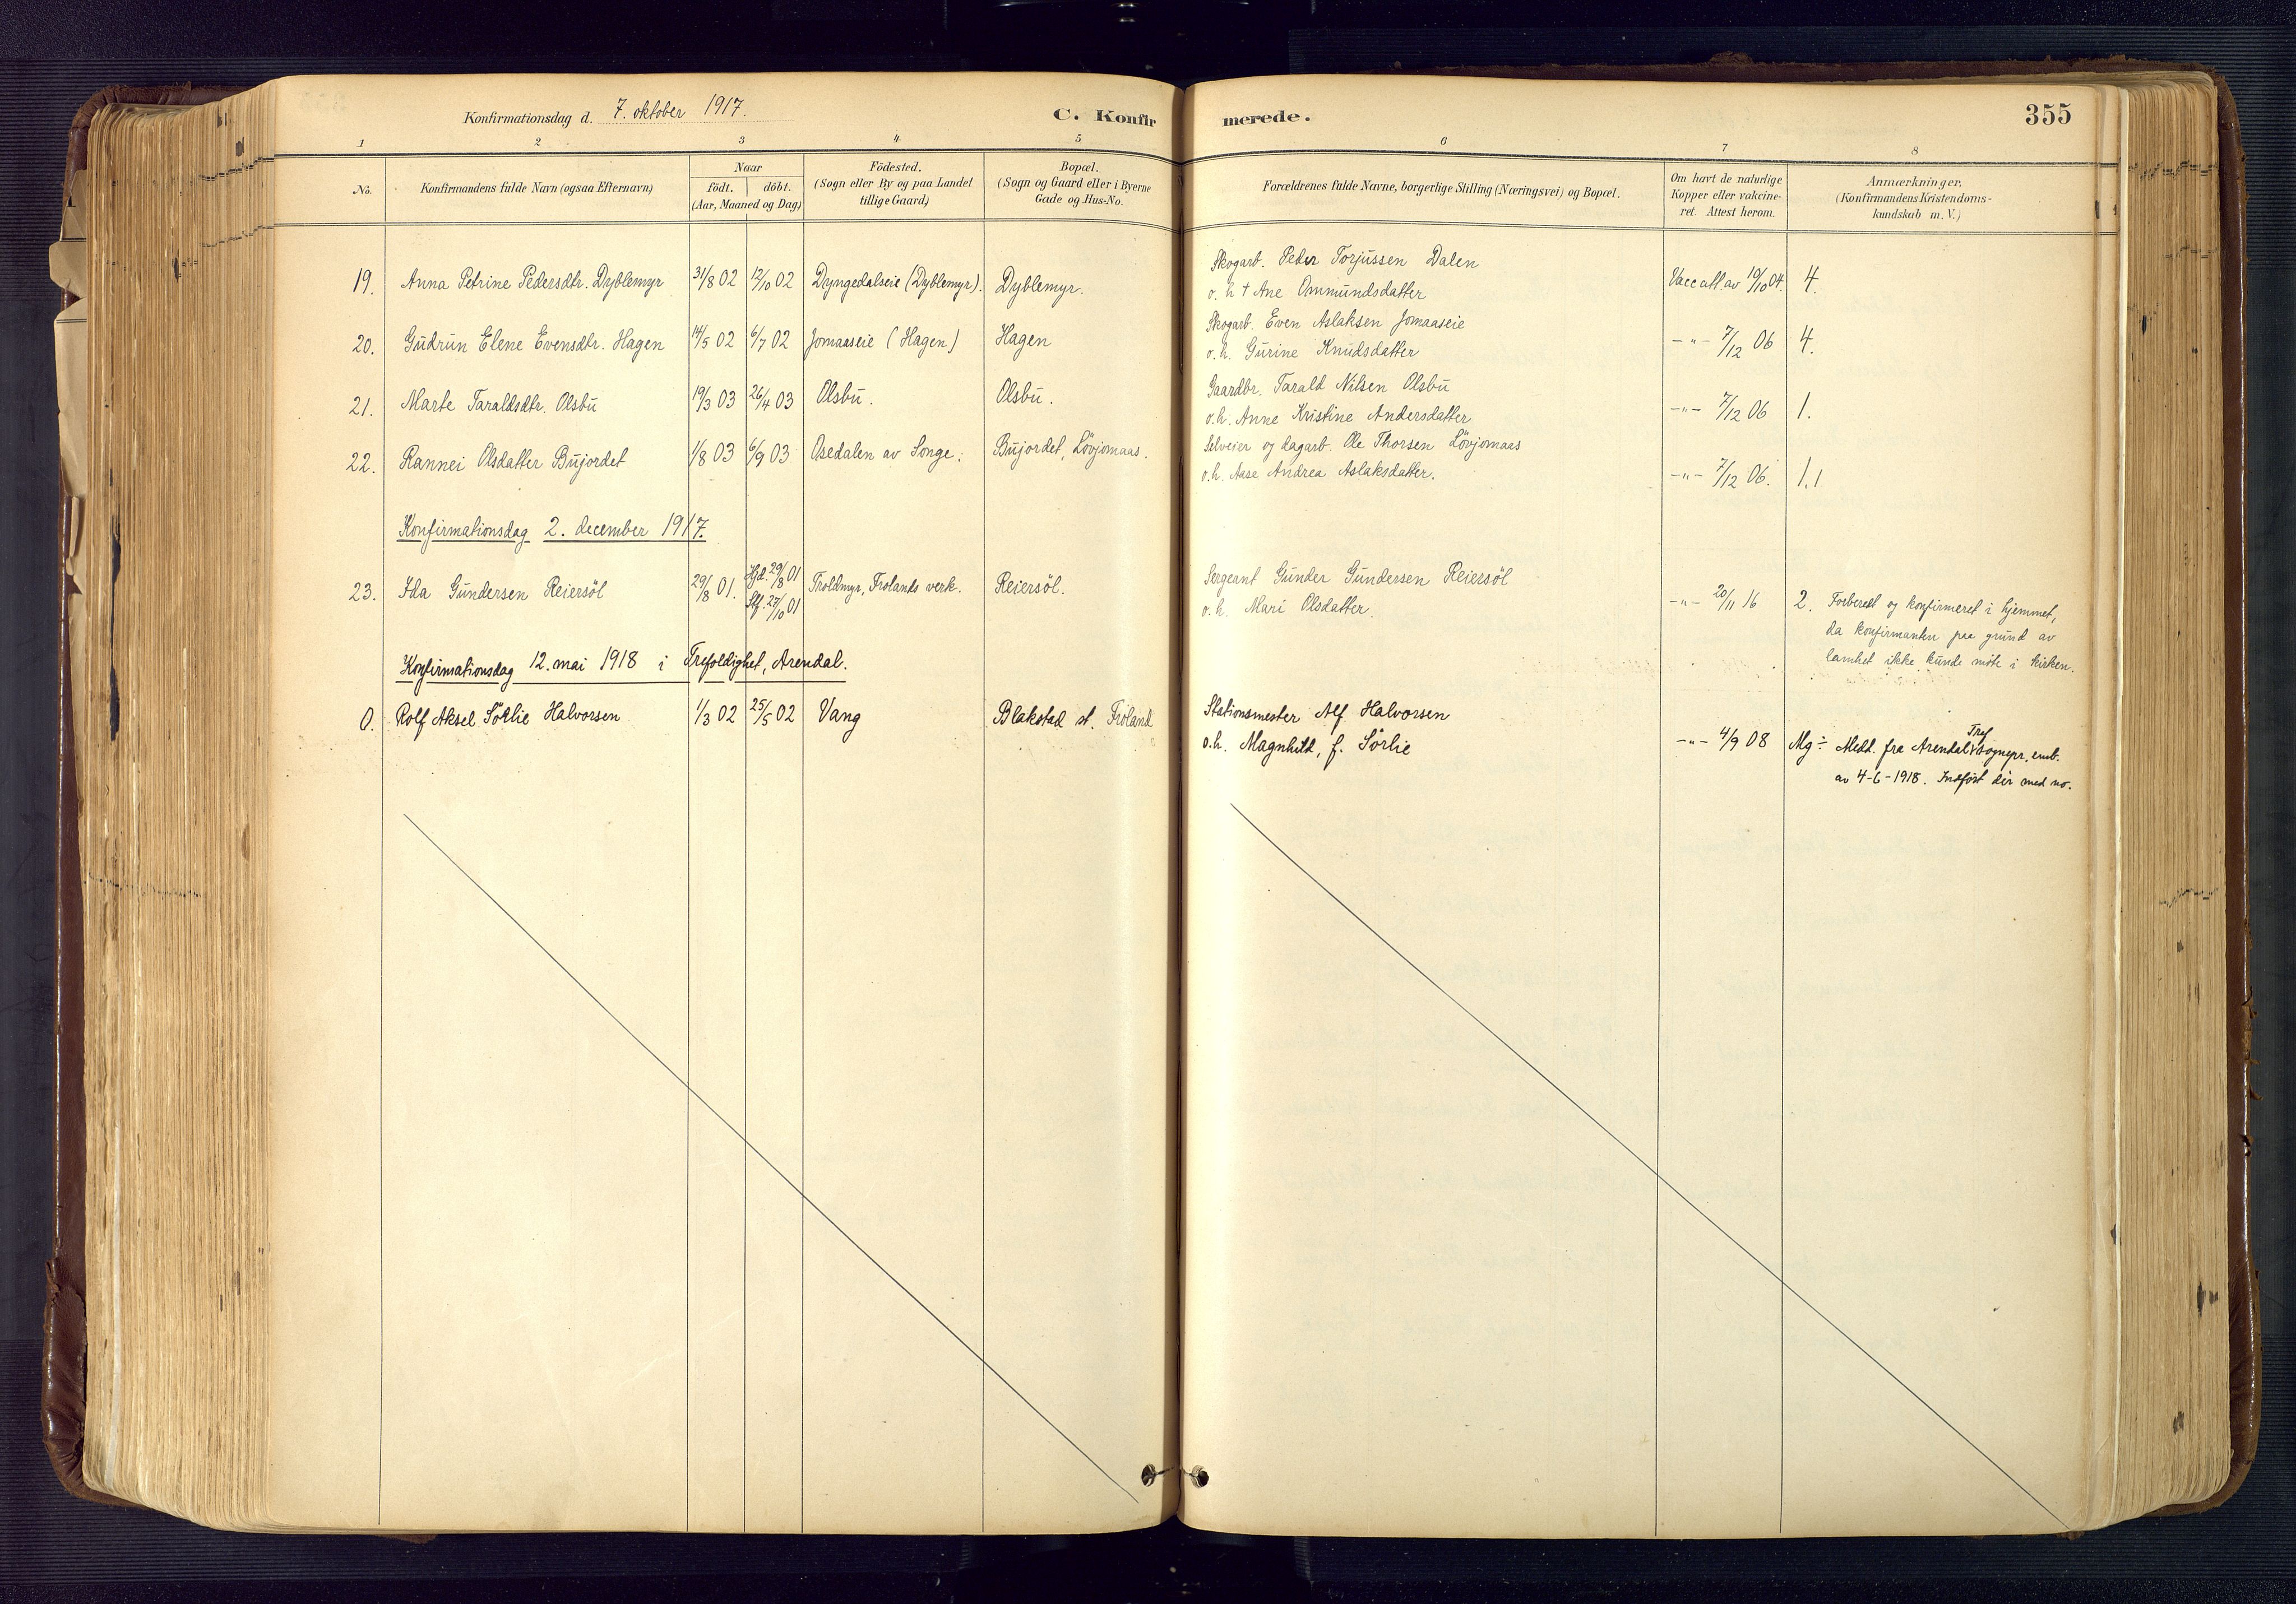 Konfirmationsdag d. 7. oktober 1917.
C. Konfirmerede.
355
1 2 3 4 5 6 7 8
No.
Konfirmandens fulde Navn (ogsaa Efternavn)
Naar
födt. döbt.
(Aar, Maaned og Dag)
Födested.
(Sogn eller By og paa Landet
tillige Gaard)
Bopæl.
(Sogn og Gaard eller i Byerne
Gade og Hus-No.
Forældrenes fulde Navne, borgerlige Stilling (Næringsvei) og Bopæl.
Om havt de naturlige
Kopper eller vakcine-
ret. Attest herom.
Anmærkninger.
(Konfirmandens Kristendoms-
kundskab m. V.)
19. Anna Petrine Pedersdtr. Dyblemyr 31/8 02 12/10 02 Dyngedalseie (Dyblemyr). Dyblemyr. Skogarb. Peder Torjussen Dalen
o. h † Ane Ommundsdatter Vacc att. av 19/10 04. 4.
20. Gudrun Elene Evensdtr. Hagen 14/5 02 6/7 02 Jomaaseie (Hagen) Hagen Skogarb. Even Aslaksen Jomaaseie
o. h. Gurine Knudsdatter -"- 7/12 06 4.
21. Marte Taraldsdtr. Olsbu 19/3 03 26/4 03 Olsbu. Olsbu. Gaardbr. Tarald Nilsen Olsbu
o. h. Anne Kristine Andersdatter -"- 7/12 06 1.
22. Rannei Olsdatter Bujordet 1/8 03 6/9 03 Osedalen av Songe. Bujordet, Lövjomaas. Selveier og dagarb. Ole Thorsen Lövjomaas
o. h. Aase Andrea Aslaksdatter. -"- 7/12 06. 1.1
Konfirmationsdag 2. december 1917.
23. Ida Gundersen Reiersöl 29/8 01. Hjd. 29/8 01
Stf. 27/10 01 Troldmyr, Frolands verk. Reiersöl. Sergeant Gunder Gundersen Reiersöl
o. h. Mari Olsdatter. -"- 20/11 16 2. Forberedt og konfirmeret i hjemmet,
da konfirmanten paa grund av
lamhet ikke kunde möte i kirken.
Konfirmationsdag 12. mai 1918 i Trefoldighet, Arendal.
0. Rolf Aksel Sörlie Halvorsen 1/3 02 25/5 02 Vang Blakstad st. Froland Stationsmester Alf Halvorsen
o. h. Magnhild, f. Sörlie -"- 4/9 08 Mg ÷ Medd. fra Arendal Tref sognepr. emb.
av 4-6-1918. Indfört dér med no.